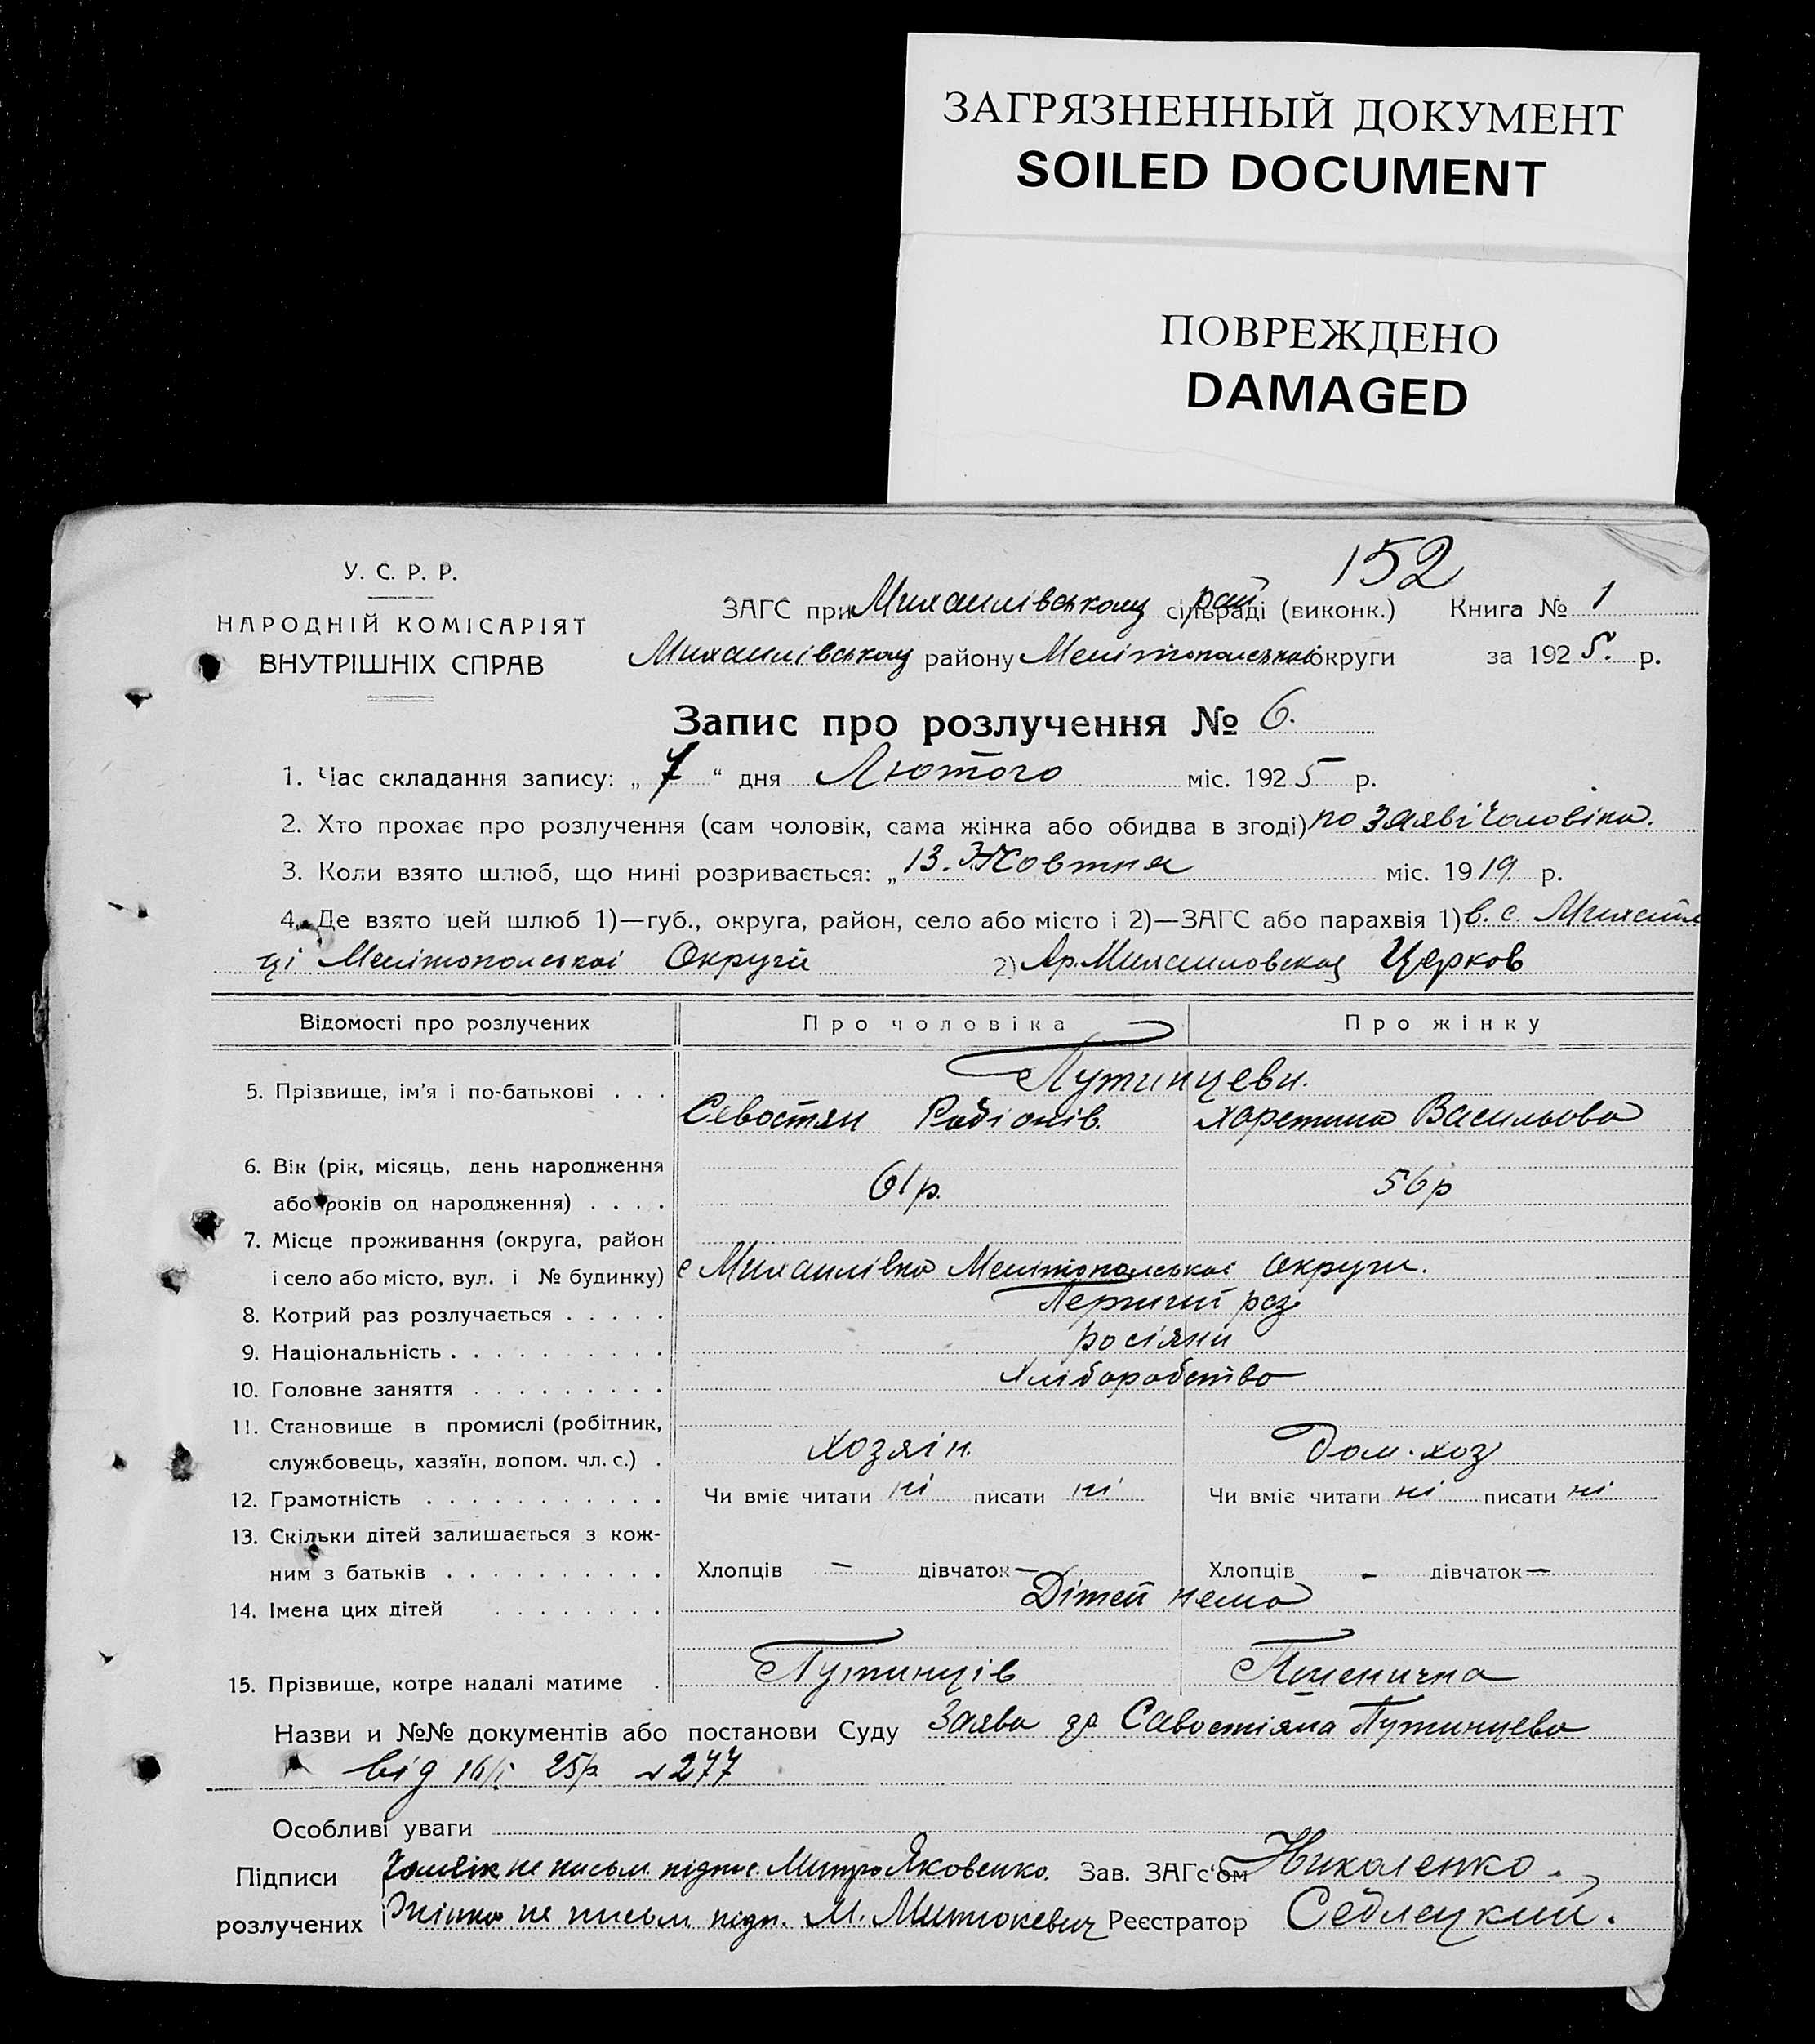 ЗАГРЯЗНЕННЫЙ ДОКУМЕНТ
SOILED DOCUMENT
ПОВРЕЖДЕНО
DAMAGED
152
У. С. Р. Р.
НАРОДНІЙ КОМІСАРІЯТ
ВНУТРІШНІХ СПРАВ
ЗАГС при Михайлівському рай сільраді (виконк.) Книга № 1
Михайлівському району Мелітопольської округи за 1925. р.
Запис про розлучення № 6.
1. Час складання запису: „ 7 “ дня Лютого міс. 1925 р.
2. Хто прохає про розлучення (сам чоловік, сама жінка або обидва в згоді) по заяві чоловіка.
3. Коли взято шлюб, що нині розривається: „ 13. Жовтня міс. 1919 р.
4. Де взято цей шлюб 1)—губ., округа, район, село або місто і 2)—ЗАГС або парахвія 1) в. с. Михайлів
ці Мелітопольскої Округи 2) Ар. Михаиловској Церков
Відомості про розлучених Про чоловіка Про жінку
Путинцеви.
5. Прізвище, ім'я і по-батькові . . . Севостян Родіонів. Харетина Васильова
6. Вік (рік, місяць, день народження
або років од народження) . . . . 61 р. 56 р
7. Місце проживання (округа, район
і село або місто, вул. і № будинку) с Михайлівка Мелітопольскої округи.
8. Котрий раз розлучається . . . . . Перший раз
9. Національність . . . . . . . . . . росіяни
10. Головне заняття . . . . . . . . . хліборобство
11. Становище в промислі (робітник,
службовець, хазяїн, допом. чл. с.) . хозяін. дом. хоз
12. Грамотність . . . . . . . . . . . Чи вміє читати ні писати ні Чи вміє читати ні писати ні
13. Скільки дітей залишається з кож-
ним з батьків . . . . . . . . . . Хлопців — дівчаток — Хлопців - дівчаток —
14. Імена цих дітей . . . . . . . Дітей нема
15. Прізвище, котре надалі матиме . Путинців Пшенична
Назви и №№ документів або постанови Суду Заява гр Савостіяна Путинцева
від 16/I 25 р. № 277
Особливі уваги
Підписи Чоловік не письм. підпис. Митро Яковенко. Зав. ЗАГс'ом Николенко.
розлучених Жінка не письм підп. М. Митюкевич Реєстратор Седлецкий.